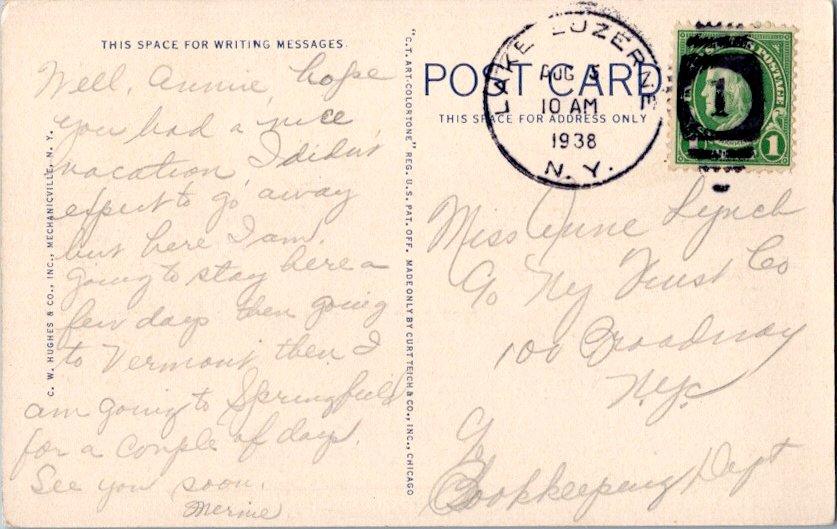 THIS SPACE FOR WRITING MESSAGES
Well, Annie, hope
you had a nice
vacation, I didn't
expect to go away
but here I am.
Going to stay here a
few days then going
to Vermont, then I
am going to Springfield
for a couple of days.
See you soon.
C. W. HUGHES & CO., INC., MECHANICVILLE, N. Y.
"C.T. ART-COLORTONE" REG. U.S. PAT. OFF. MADE ONLY BY CURT TEICH & CO., INC., CHICAGO
POST CARD
THIS SPACE FOR ADDRESS ONLY
LAKE LUZERNE
AUG 5
10 AM
1938
N. Y.
1
1
Miss Anne Lynch
c/o NY Trust Co
100 Broadway
N.Y.C.
Bookkeeping Dept